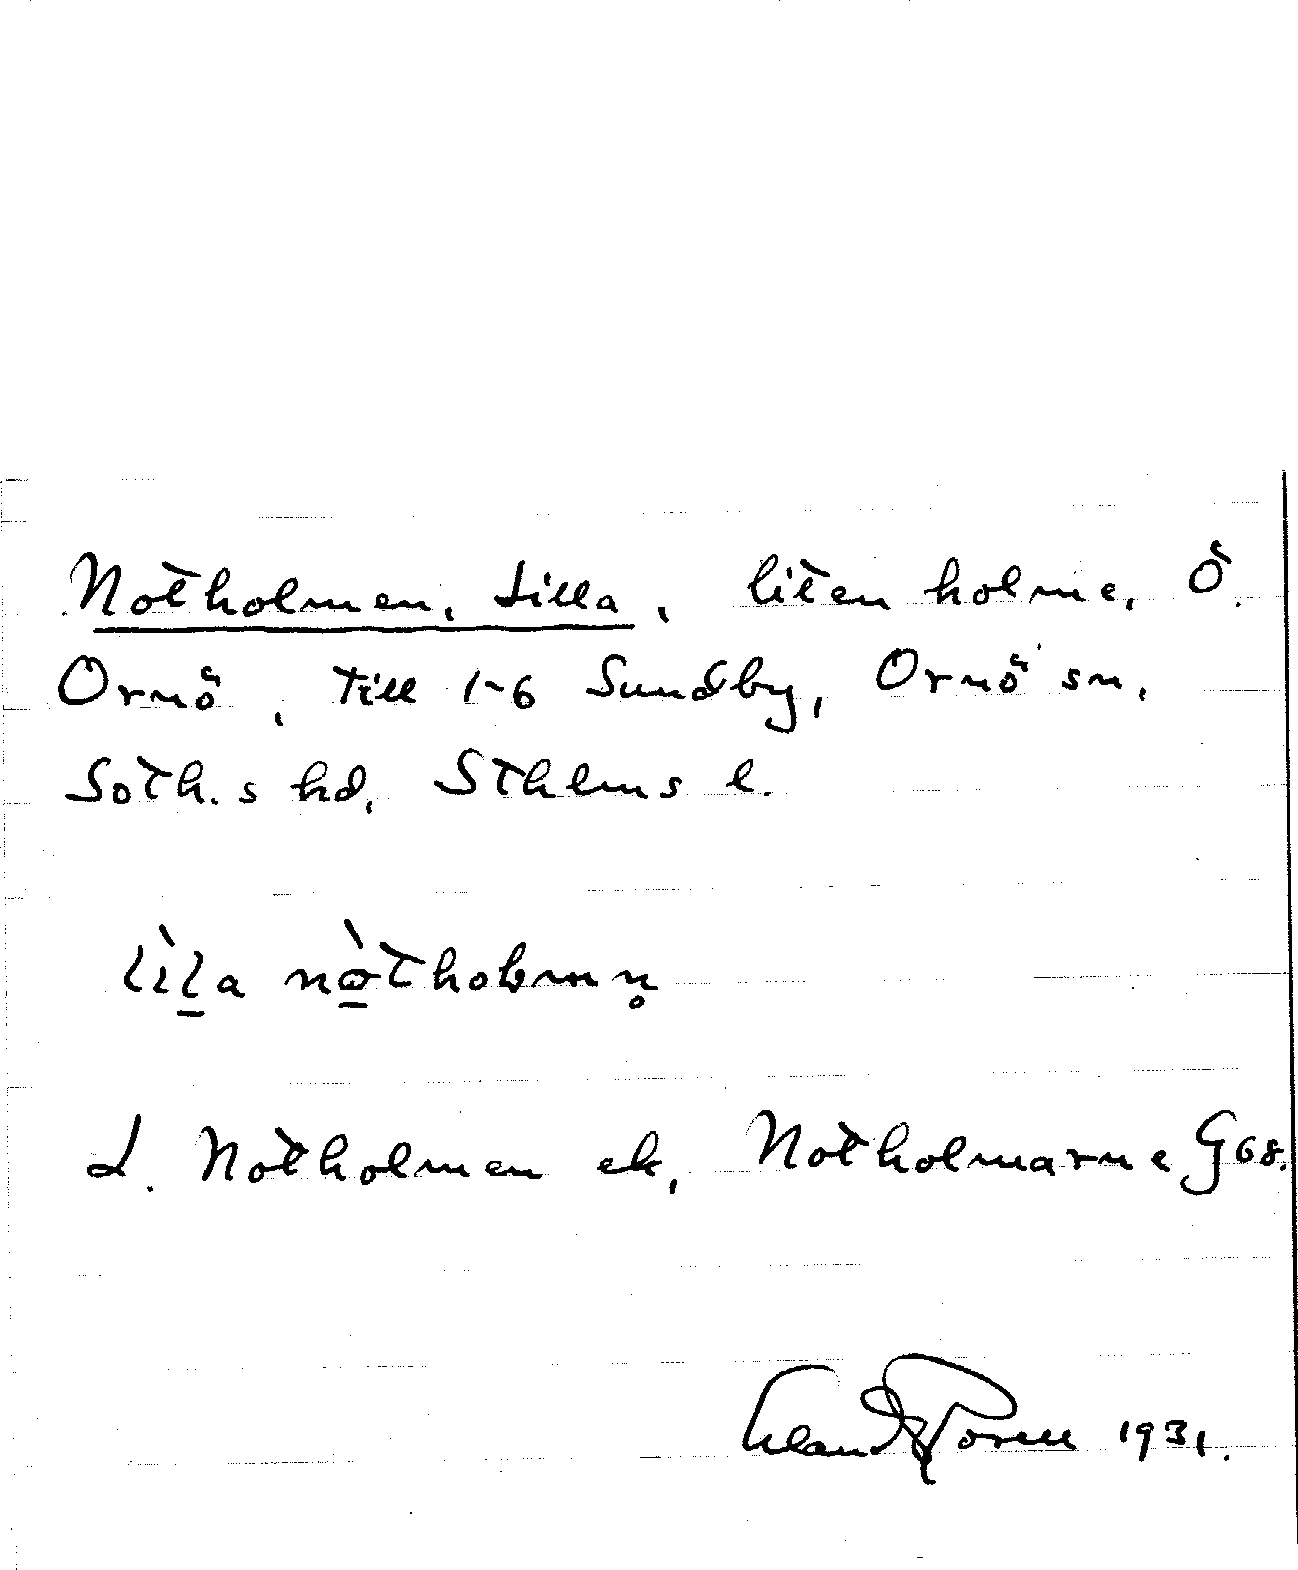 Notholmen, Lilla, liten holme, Ö.
Ornö, till 1-6 Sundby, Ornö sn,
Soth.s hd, Sthlms l.
lìla nòtholmn̥
L. Notholmen ek, Notholmarne G68.
1931.